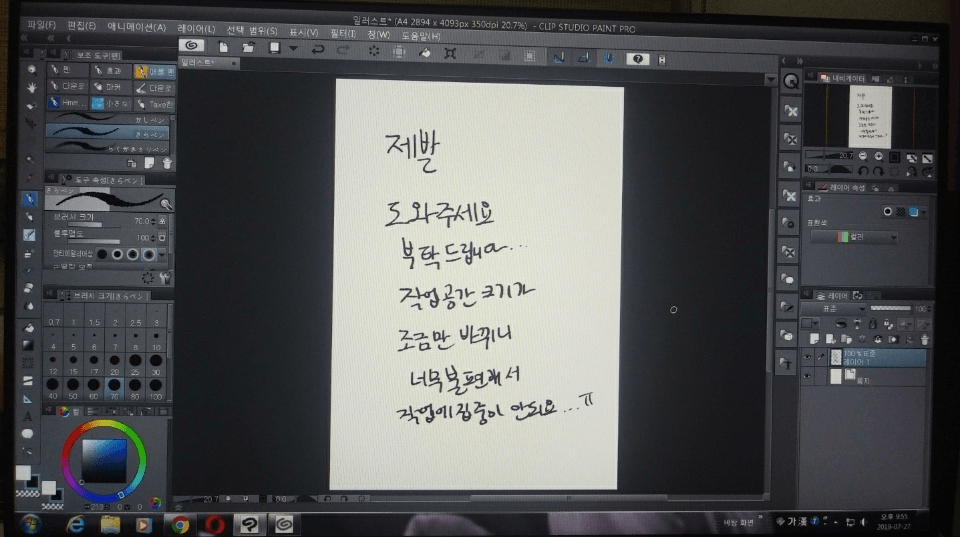 일러스트* (A4 2894 x 4093px 350dpi 20.7%) - CLIP STUDIO PAINT PRO
파일(F) 편집(E) 애니메이션(A) 레이어(L) 선택 범위(S) 표시(V) 필터(I) 창(W) 도움말(H)
보조 도구(펜)
일러스트*
내비게이터
펜 효과
마커
20.7
레이어 속성
효과
표현색
컬러
도구 속성(ざらペン)
ざらペン
브러시 크기 70.0
불투명도 100
브러시 크기(ざらペン)
0.7 1 1.5 2 2.5 3
4 5 6 7 8 10
12 15 17 20 25 30
40 50 60 70 80 100
제발
도와주세요
부탁드립니다...
작업공간 크기가
조금만 바뀌니
너무 불편해서
작업에 집중이 안되요...ㅠ
레이어
표준 100
100 % 표준
레이어 1
용지
20.7 0.0
바탕 화면
가 漢
오후 9:55
2019-07-27